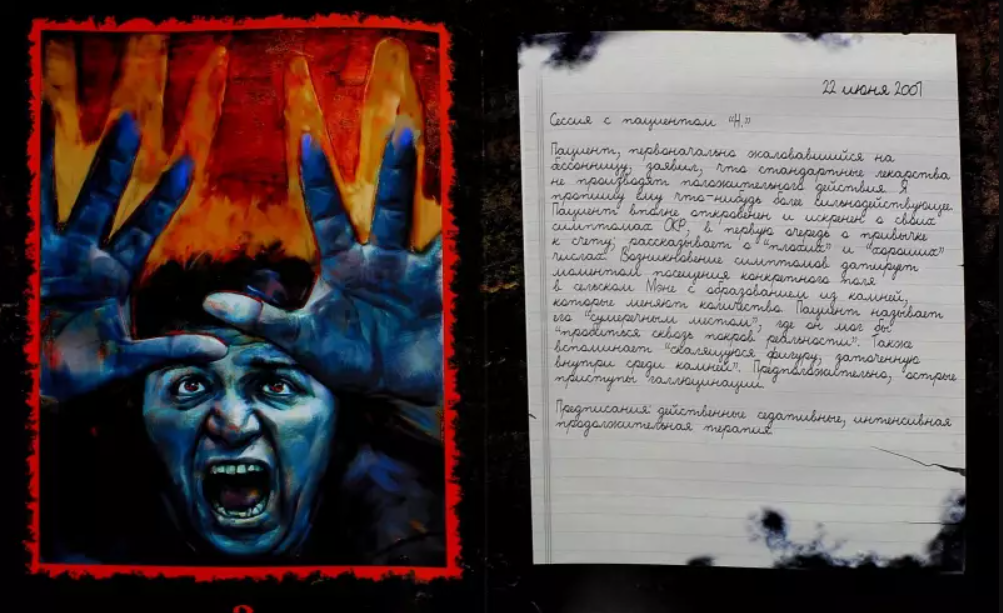 22 июня 2007
Сессия с пациентом "Н."
Пациент, первоначально жаловавшийся на
бессонницу, заявил, что стандартные лекарства
не производят положительного действия. Я
пропишу ему что-нибудь более сильнодействующее.
Пациент вполне откровенен и искренен о своих
симптомах ОКР, в первую очередь о привычке
к счету; рассказывает о "плохих" и "хороших"
числах. Возникновение симптомов датирует
моментом посещения конкретного поля
в сельском Мэне с образованием из камней,
которые меняют количество. Пациент называет
его "сумеречным местом", где он мог бы
"пробиться сквозь покров реальности". Также
вспоминает "скалящуюся фигуру, заточенную
внутри среди камней". Предположительно, острые
приступы галлюцинации.
Предписания: действенные седативные, интенсивная
продолжительная терапия.